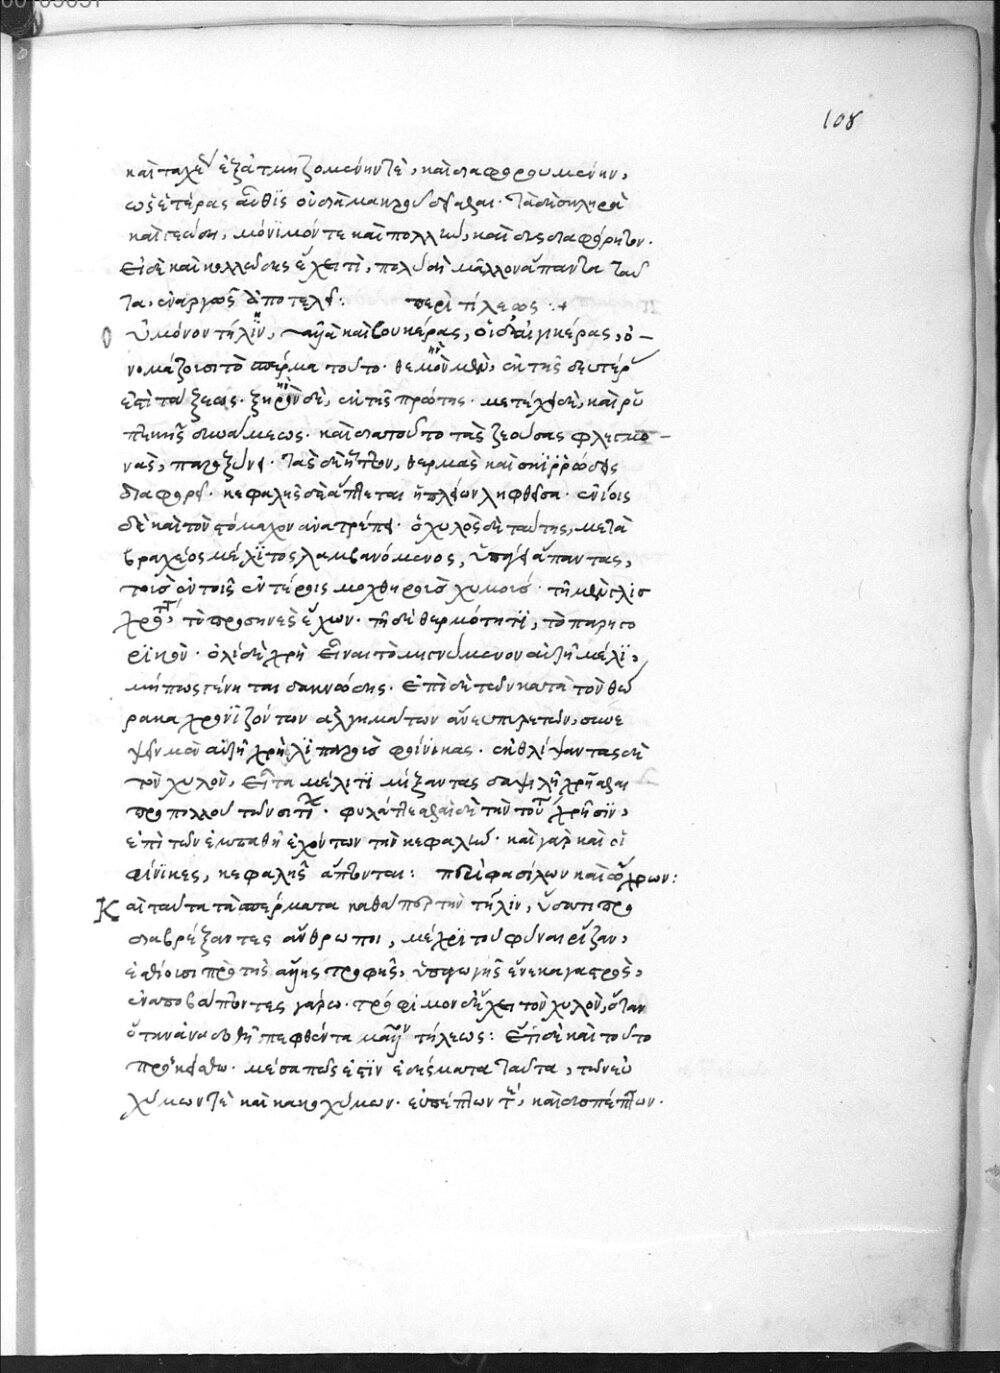 108
καὶ ταχέως ἐξατμιζομένην τὲ, καὶ διαφορουμένην,
ὡς ἑτέρας αὖθις οὐ διαμακροῦ δεῖσθαι. τὰ δὲ σκληρὰ
καὶ γεώδη, μόνιμόν τε καὶ πολλὴν, καὶ δυσδιαφόρητον.
εἰ δὲ καὶ κολλῶδες ἔχει τὶ, πολὺ δὴ μᾶλλον ἅπαντα ταῦ
τα, ἐναργῶς ἀποτελεῖ: περὶ τήλεως .+
Ο ὐ μόνον τῆλιν, ἀλλὰ καὶ βουκέρας, οἱ δὲ αἰγικέρας, ὀ-
νομάζουσι τὸ σπέρμα τοῦτο. θερμὸν μὲν, ἐκ τῆς δευτέρας
ἐστὶ τάξεως. ξηρὸν δὲ, ἐκ τῆς πρώτης. μετέχει δὲ, καὶ ῥυ
πτικῆς δυνάμεως. καὶ διατοῦτο τὰς ζεούσας φλεγμο-
νὰς, παροξύνει. τὰς δὲ ἧττον, θερμὰς καὶ σκιῤῥώδεις
διαφορεῖ. κεφαλῆς δὲ ἅπτεται ἡ πλέον ληφθεῖσα. ἐνίοις
δὲ καὶ τὸν στόμαχον ἀνατρέπει. ὁ χυλὸς δὲ ταύτης, μετὰ
βραχέος μέλιτος λαμβανόμενος, ὑπάγει ἅπαντας,
τοὺς ἐν τοῖς ἐντέροις μοχθηροὺς χυμούς. τῇ μὲν γλισ
χρότητι, τὸ προσηνὲς ἔχων. τῇ δὲ θερμότητι, τὸ παρηγο
ρικόν. ὀλίγον δὲ χρὴ εἶναι τὸ μιγνύμενον αὐτῇ μέλι,
μήπως γένηται δακνώδης. ἐπὶ δὲ τῶν κατὰ τὸν θώ
ρακα χρονιζόντων ἀλγημάτων ἄνευ πυρετῶν, συνε
ψεῖν μὲν αὐτῇ χρὴ λιπαροὺς φοίνικας. ἐκθλίψαντας δὲ
τὸν χυλὸν, εἶτα μέλιτι μίξαντας δαψιλῆ χρῆσθαι
προπολλοῦ τῶν σιτίων. φυλάττεσθαι δὲ τὴν τούτων χρῆσιν,
ἐπὶ τῶν εὐπαθῆ ἐχόντων τὴν κεφαλήν. καὶ γὰρ καὶ οἱ
φοίνικες, κεφαλῆς ἅπτονται: περὶ φασίλων καὶ ὤχρων:
Κ αὶ ταῦτα τὰ σπέρματα καθάπερ τὴν τῆλιν, ὕδατι προ
διαβρέξαντες ἄνθρωποι, μέχρι τοῦ φῦναι ῥίζαν,
ἐσθίουσι πρὸ τῆς ἄλλης τροφῆς, ὑπαγωγῆς ἕνεκα γαστρὸς,
ἐναποβάπτοντες γάρω. τρόφιμον δὲ ἔχει τὸν χυλὸν, ὅταν
ὅτηνάναδοθῇ πεφθέντα μᾶλλον τήλεως: ἔτι δὲ καὶ τοῦτο
προκείσθω. μέσα πώς ἐστὶν ἐδέσματα ταῦτα, τῶν εὐ
χύμων τὲ καὶ κακοχύμων. εὐπέπτων τὲ, καὶ δυσπέπτων.